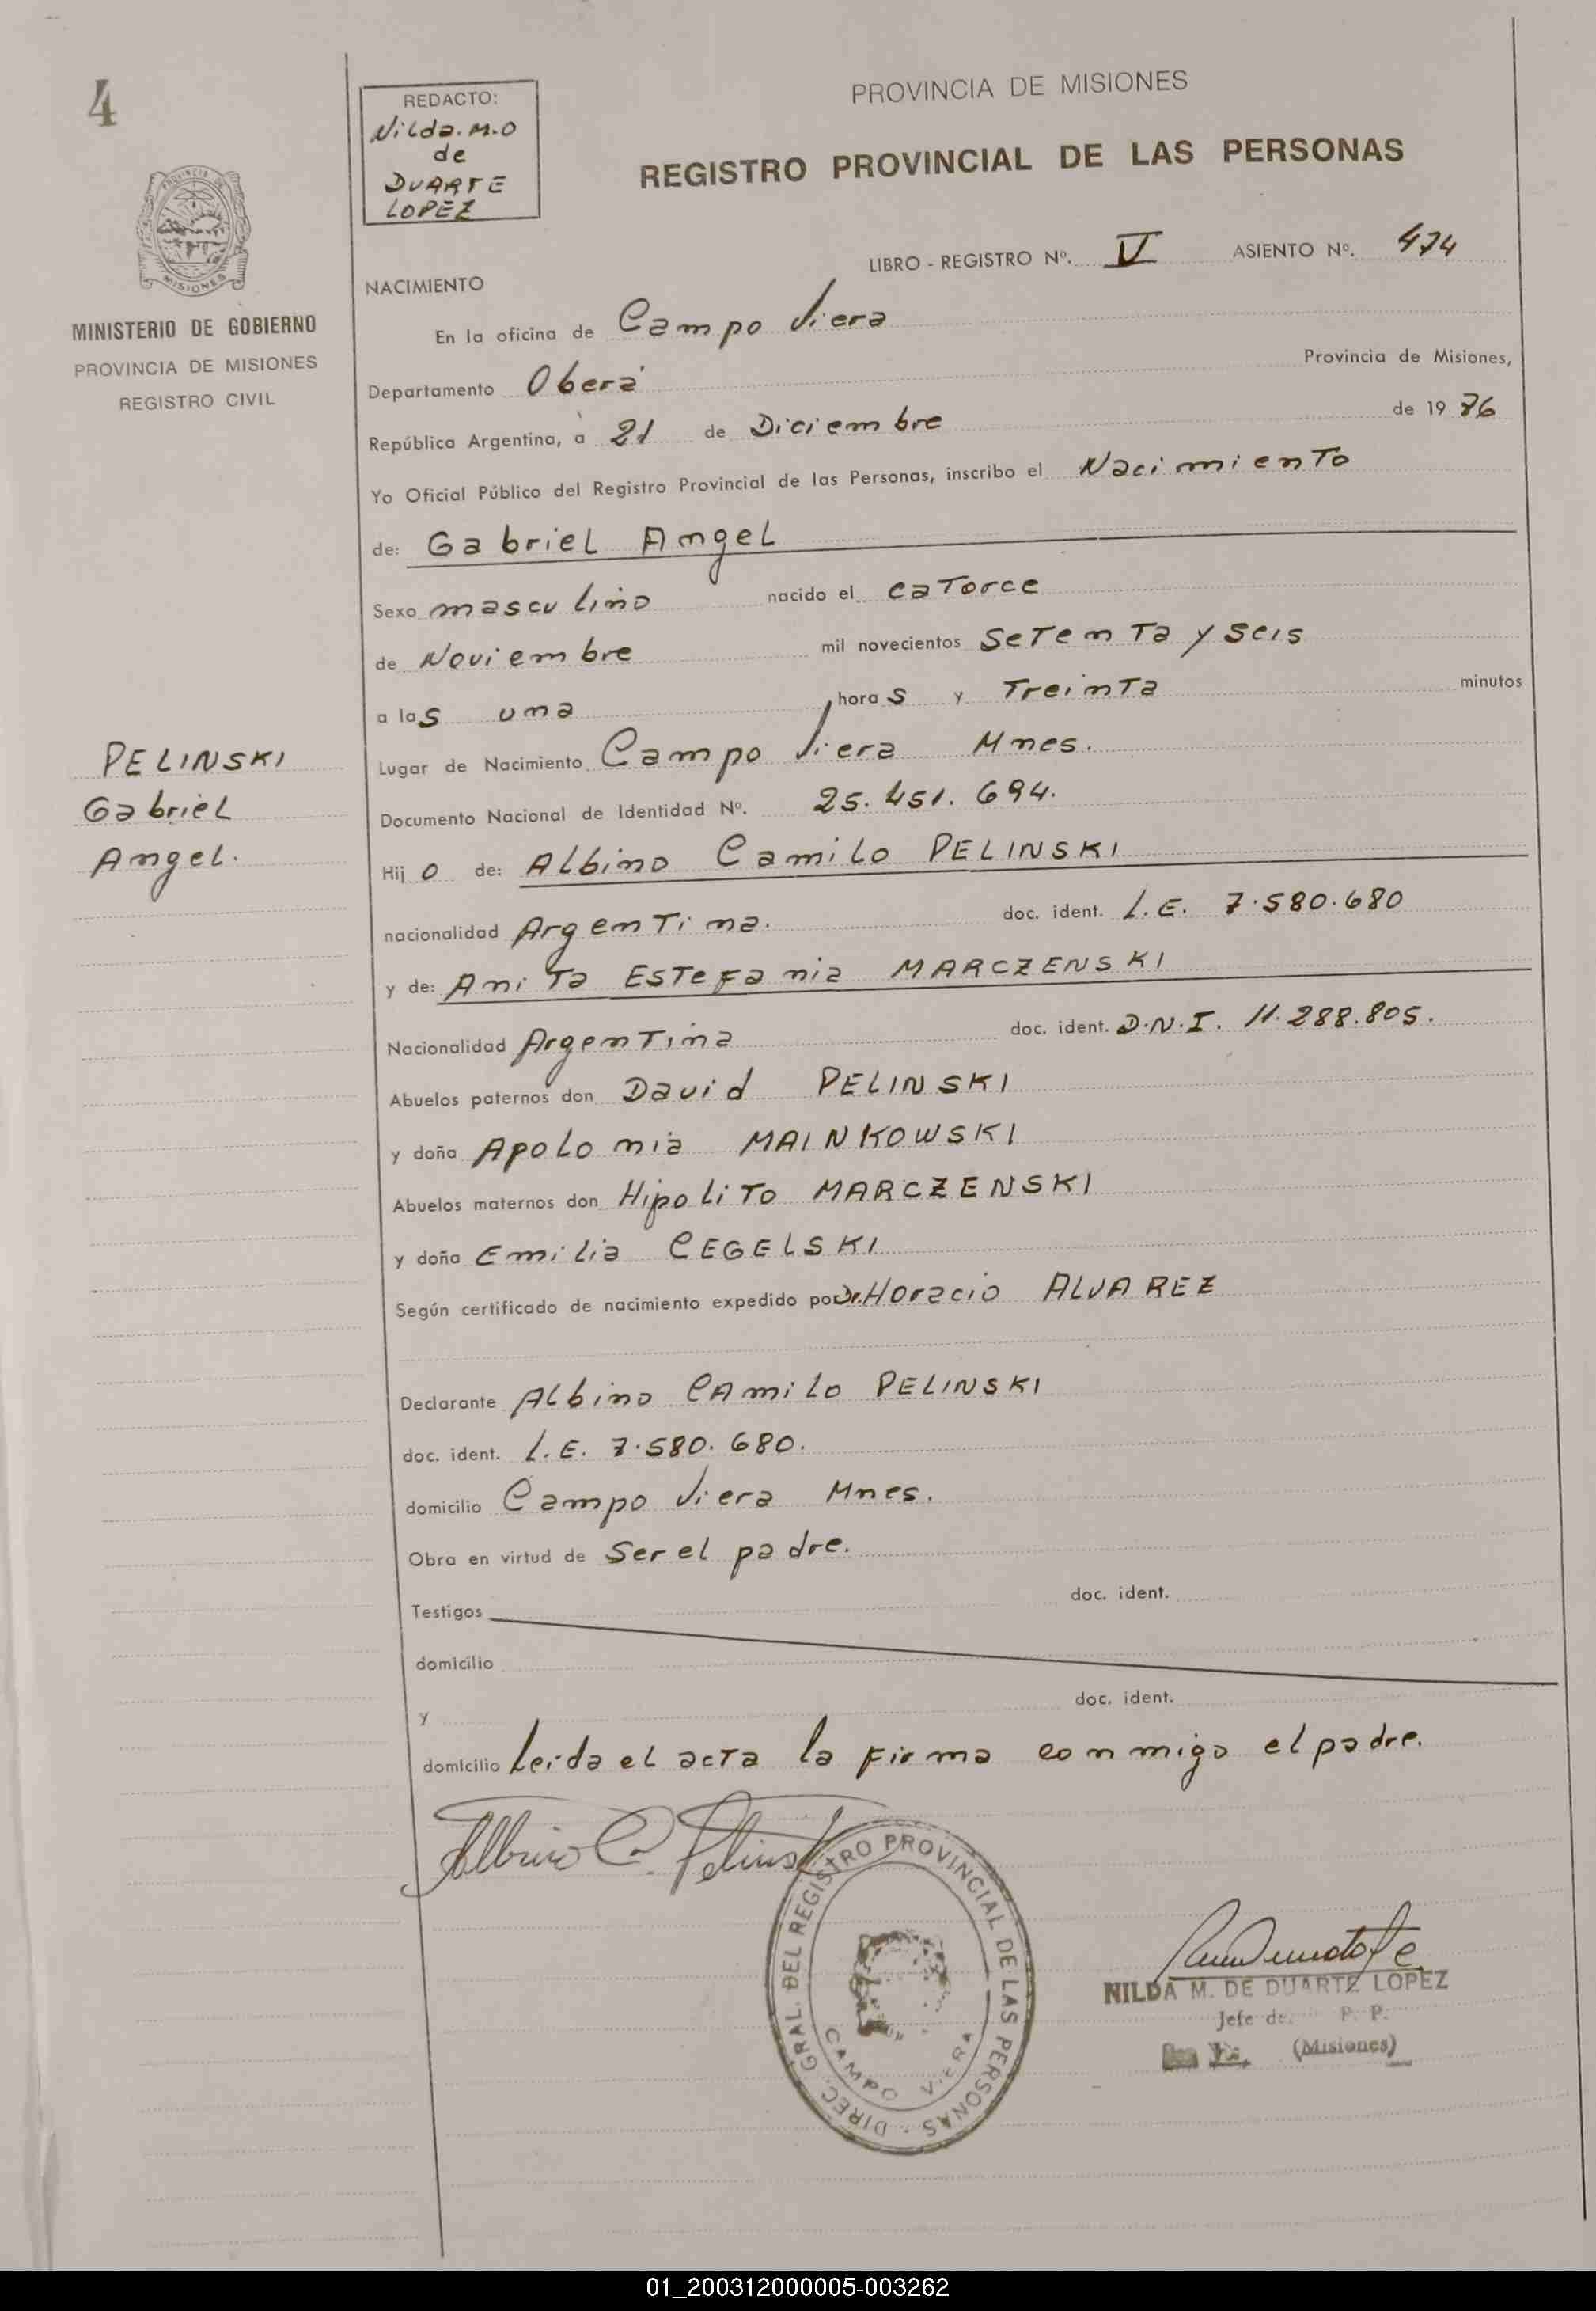 4
REDACTO:
Nilda. M.O
de
DUARTE
LOPEZ
PROVINCIA DE MISIONES
REGISTRO PROVINCIAL DE LAS PERSONAS
PROVINCIA DE
MISIONES
MINISTERIO DE GOBIERNO
PROVINCIA DE MISIONES
REGISTRO CIVIL
LIBRO - REGISTRO Nº. V ASIENTO Nº. 474
NACIMIENTO
En la oficina de Campo Viera
Departamento Oberá Provincia de Misiones,
República Argentina, a 21 de Diciembre de 19 76
Yo Oficial Público del Registro Provincial de las Personas, inscribo el Nacimiento
de: Gabriel Angel
Sexo masculino nacido el catorce
de Noviembre mil novecientos setenta y seis
a las una horas y Treinta minutos
Lugar de Nacimiento Campo Viera Mnes.
Documento Nacional de Identidad Nº. 25.451.694.
PELINSKI
Gabriel
Angel.
Hijo de: Albino Camilo PELINSKI
nacionalidad Argentina. doc. ident. L.E. 7.580.680
y de: Anita Estefania MARCZENSKI
Nacionalidad Argentina doc. ident. D.N.I. 11.288.805.
Abuelos paternos don David PELINSKI
y doña Apolonia MAINKOWSKI
Abuelos maternos don Hipolito MARCZENSKI
y doña Emilia CEGELSKI
Según certificado de nacimiento expedido por Dr. Horacio ALVAREZ
Declarante Albino Camilo PELINSKI
doc. ident. L.E. 7.580.680.
domicilio Campo Viera Mnes.
Obra en virtud de Ser el padre.
Testigos doc. ident.
domicilio
y doc. ident.
domicilio Leida el acta la firma conmigo el padre.
Albino C. Pelinski
DIREC. GRAL. DEL REGISTRO PROVINCIAL DE LAS PERSONAS
CAMPO VIERA
NILDA M. DE DUARTE LOPEZ
Jefe de P. P.
(Misiones)
01_200312000005-003262